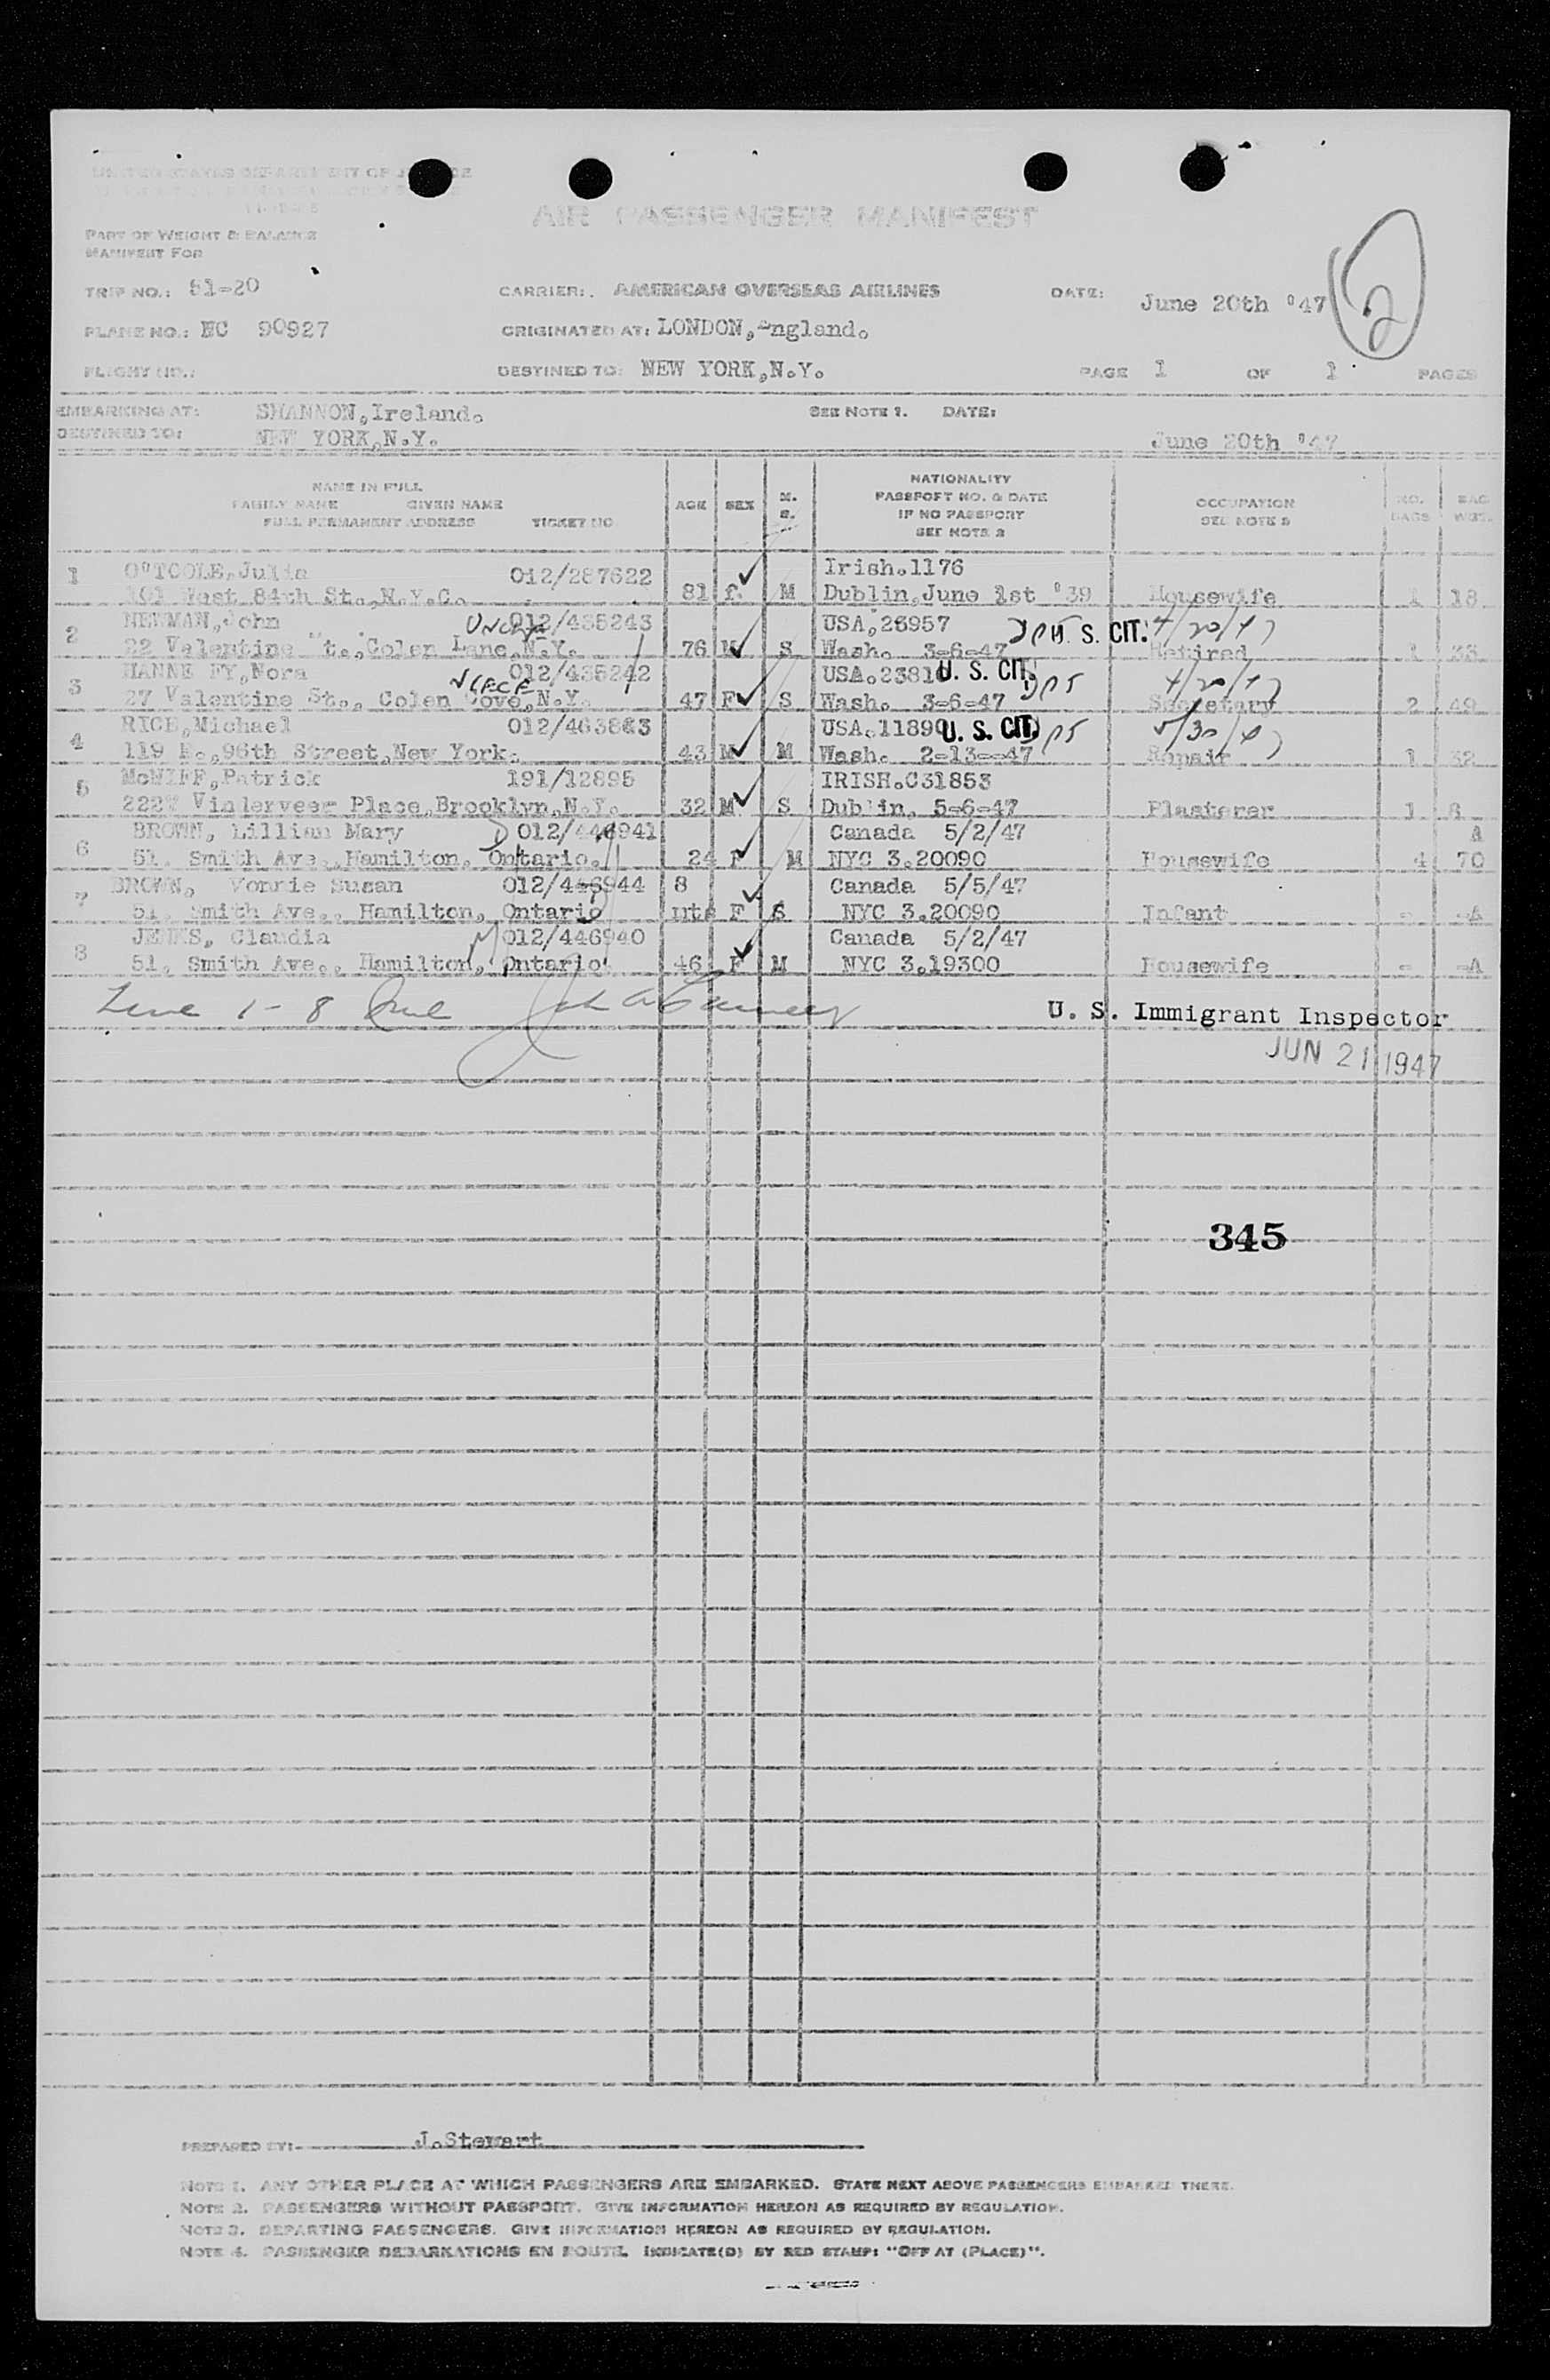 UNITED STATES DEPARTMENT OF JUSTICE
AIR PASSENGER MANIFEST
PART OF WEIGHT & BALANCE
MANIFEST FOR
TRIP NO.: 81-20 CARRIER: AMERICAN OVERSEAS AIRLINES DATE: June 20th '47
PLANE NO.: NC 90927 ORIGINATED AT: LONDON, England.
FLIGHT NO.: DESTINED TO: NEW YORK,N.Y. PAGE 1 OF 1 PAGES
EMBARKING AT: SHANNON,Ireland. SEE NOTE 1. DATE:
DESTINED TO: NEW YORK,N.Y. June 20th '47
NAME IN FULL
FAMILY NAME GIVEN NAME
FULL PERMANENT ADDRESS TICKET NO.
AGE SEX M. S.
NATIONALITY
PASSPORT NO. & DATE
IF NO PASSPORT
SEE NOTE 2
OCCUPATION
SEE NOTE 3
NO. BAGS
BAG WGT.
1 O'TOOLE,Julia 012/287622 Irish.1176
101 West 84th St.,N.Y.C. 81 f. M Dublin,June 1st '39 Housewife 1 18
2 NEWMAN,John UNCLE 012/435243 USA.26957 U. S. CIT. 4/20/47
22 Valentine "t.,Colen Lane,N.Y. 76 M S Wash. 3-6-47 Retired 1 33
3 HANNE FY,Nora NIECE 012/435242 USA.2381 U. S. CIT. 4/20/47
27 Valentine St., Colen Cove,N.Y. 47 F S Wash. 3-6-47 Secretary 2 49
4 RICE,Michael 012/463843 USA.11890 U. S. CIT. 5/30/47
119 E.,96th Street,New York. 43 M M Wash. 2-13--47 Repair 1 32
5 McNIFF,Patrick 191/12895 IRISH.C31853
2227 Vinderveer Place,Brooklyn,N.Y. 32 M S Dublin, 5-6-47 Plasterer 1 8
6 BROWN, Lillian Mary D 012/446941 Canada 5/2/47 A
51, Smith Ave.,Hamilton, Ontario. 24 F M NYC 3.20090 Housewife 4 70
7 BROWN, Vonnie Susan 012/446944 8 Canada 5/5/47
51, Smith Ave., Hamilton, Ontario mts F S NYC 3.20090 Infant - -A
8 JENNS, Claudia M 012/446940 Canada 5/2/47
51, Smith Ave., Hamilton, Ontario 46 F M NYC 3.19300 Housewife - -A
Line 1-8 Incl
U. S. Immigrant Inspector
JUN 21 1947
345
PREPARED BY: J.Stewart
NOTE 1. ANY OTHER PLACE AT WHICH PASSENGERS ARE EMBARKED. STATE NEXT ABOVE PASSENGERS EMBARKED THERE.
NOTE 2. PASSENGERS WITHOUT PASSPORT. GIVE INFORMATION HEREON AS REQUIRED BY REGULATION.
NOTE 3. DEPARTING PASSENGERS. GIVE INFORMATION HEREON AS REQUIRED BY REGULATION.
NOTE 4. PASSENGER DEBARKATIONS EN ROUTE. INDICATE(D) BY RED STAMP: "OFF AT (PLACE)".